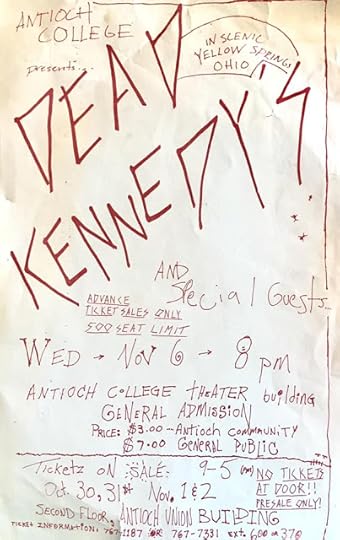 ANTIOCH
COLLEGE
Presents...
IN SCENIC
YELLOW SPRINGS
OHIO
DEAD
KENNEDY'S
AND
Special Guests...
ADVANCE
TICKET SALES ONLY
500 SEAT LIMIT
WED → NOV 6 → 8 pm
ANTIOCH COLLEGE THEATER building
GENERAL ADMISSION
PRICE: $3.00 - Antioch community
$7.00 GENERAL PUBLIC
Ticketz ON SALE: 9-5 (pm)
Oct. 30, 31st Nov. 1 & 2
NO TICKETS
AT DOOR!!
PRESALE ONLY!
SECOND FLOOR, ANTIOCH UNION BUILDING
TICKET INFORMATION: 767-1187 OR 767-7331 ext. 600 or 370